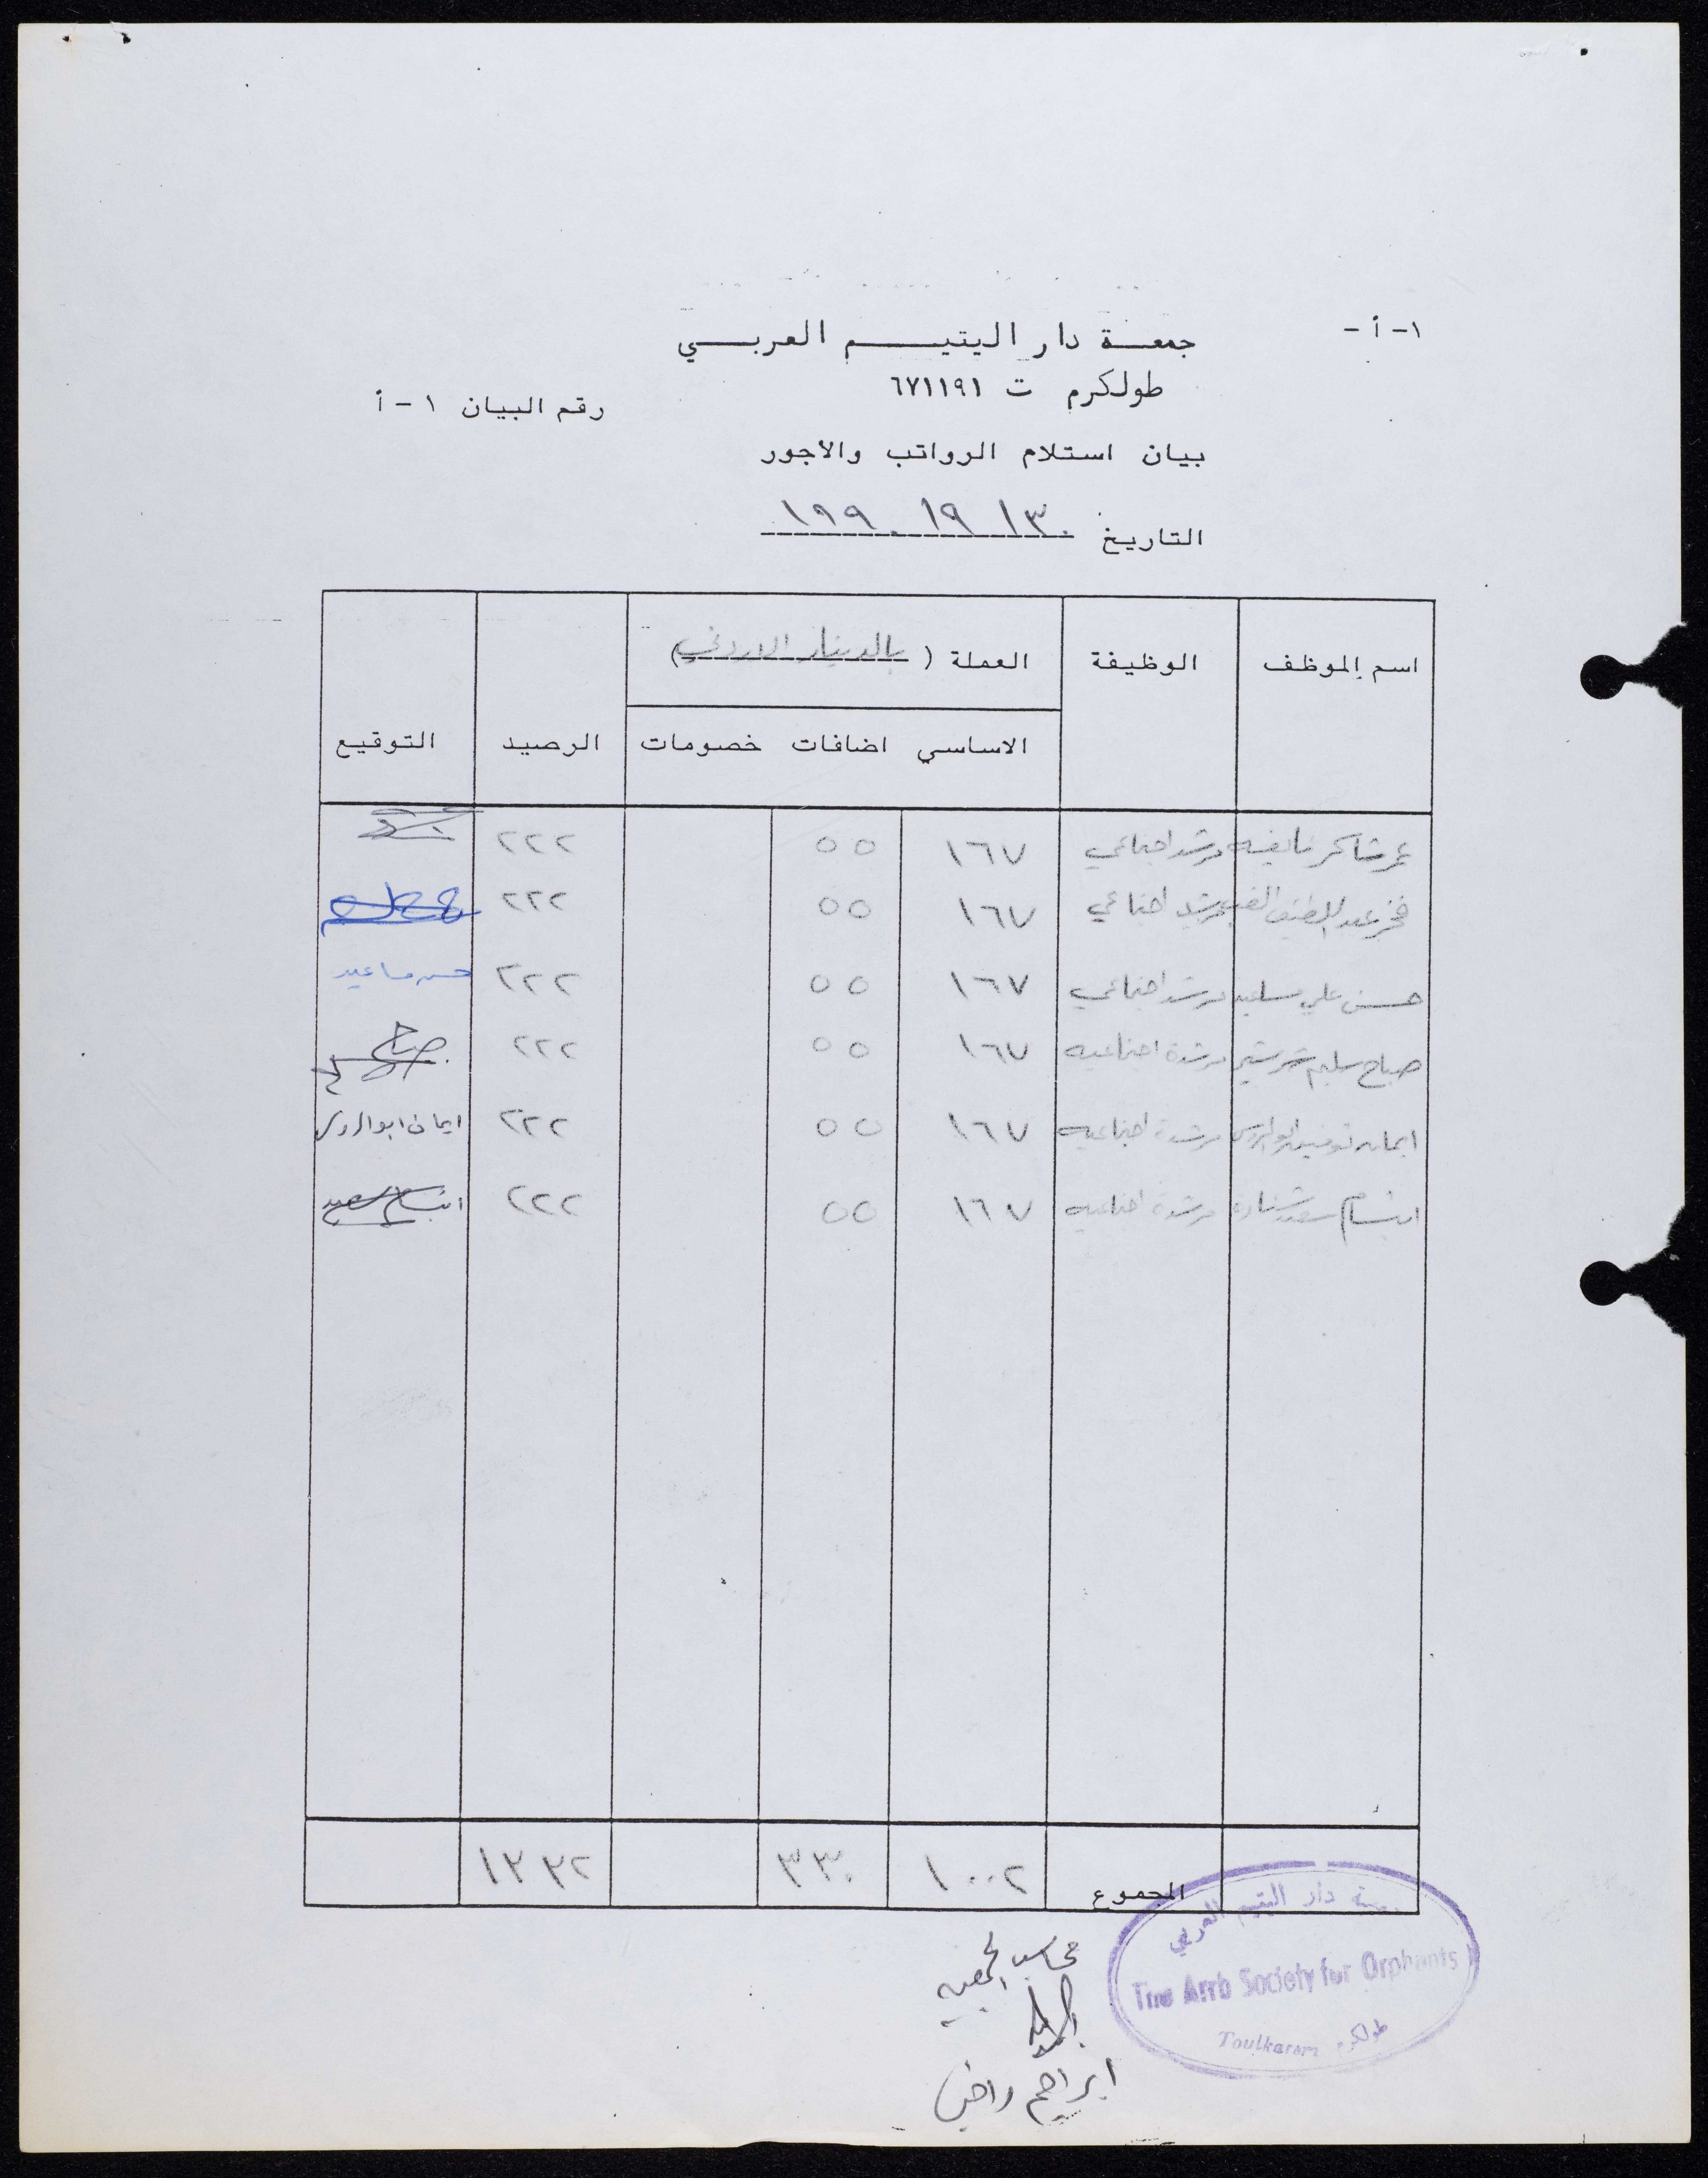 ١-أ-
جمعـة دار اليتيــــم العربـــي
طولكرم ت ٦٧١١٩١
رقم البيان ١-أ
بيان استلام الرواتب والاجور
التاريخ ٣٠/٩/١٩٩٠
اسم الموظف الوظيفة العملة (بالدينار الاردني) الرصيد التوقيع
الاساسي اضافات خصومات
عمر شاكر مرشد اجتماعي ١٦٧ ٥٥ ٢٢٢
عبد اللطيف مرشد اجتماعي ١٦٧ ٥٥ ٢٢٢
حسن علي مساعيد مرشد اجتماعي ١٦٧ ٥٥ ٢٢٢ حسن مساعيد
صباح سليم مرشدة اجتماعيه ١٦٧ ٥٥ ٢٢٢ صباح
ايمان توفيق ابو الروس مرشدة اجتماعيه ١٦٧ ٥٥ ٢٢٢ ايمان ابو الروس
ابتسام سعيد مرشدة اجتماعيه ١٦٧ ٥٥ ٢٢٢ ابتسام سعيد
المجموع ١٠٠٢ ٣٣٠ ١٣٣٢
جمعية دار اليتيم العربي
The Arrb Society for Orphants
Toulkarem طولكرم
محاسب الجمعيه
ابراهيم راضي